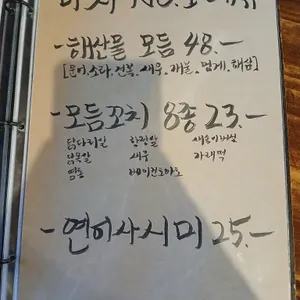 -해산물 모듬 48.-
[문어, 소라, 전복, 새우, 개불, 멍게, 해삼]
-모듬꼬치 8종 23.-
닭다리살 한정알 새송이버섯
닭목살 새우 가래떡
염통 베이컨토마토
-연어사시미 25.-